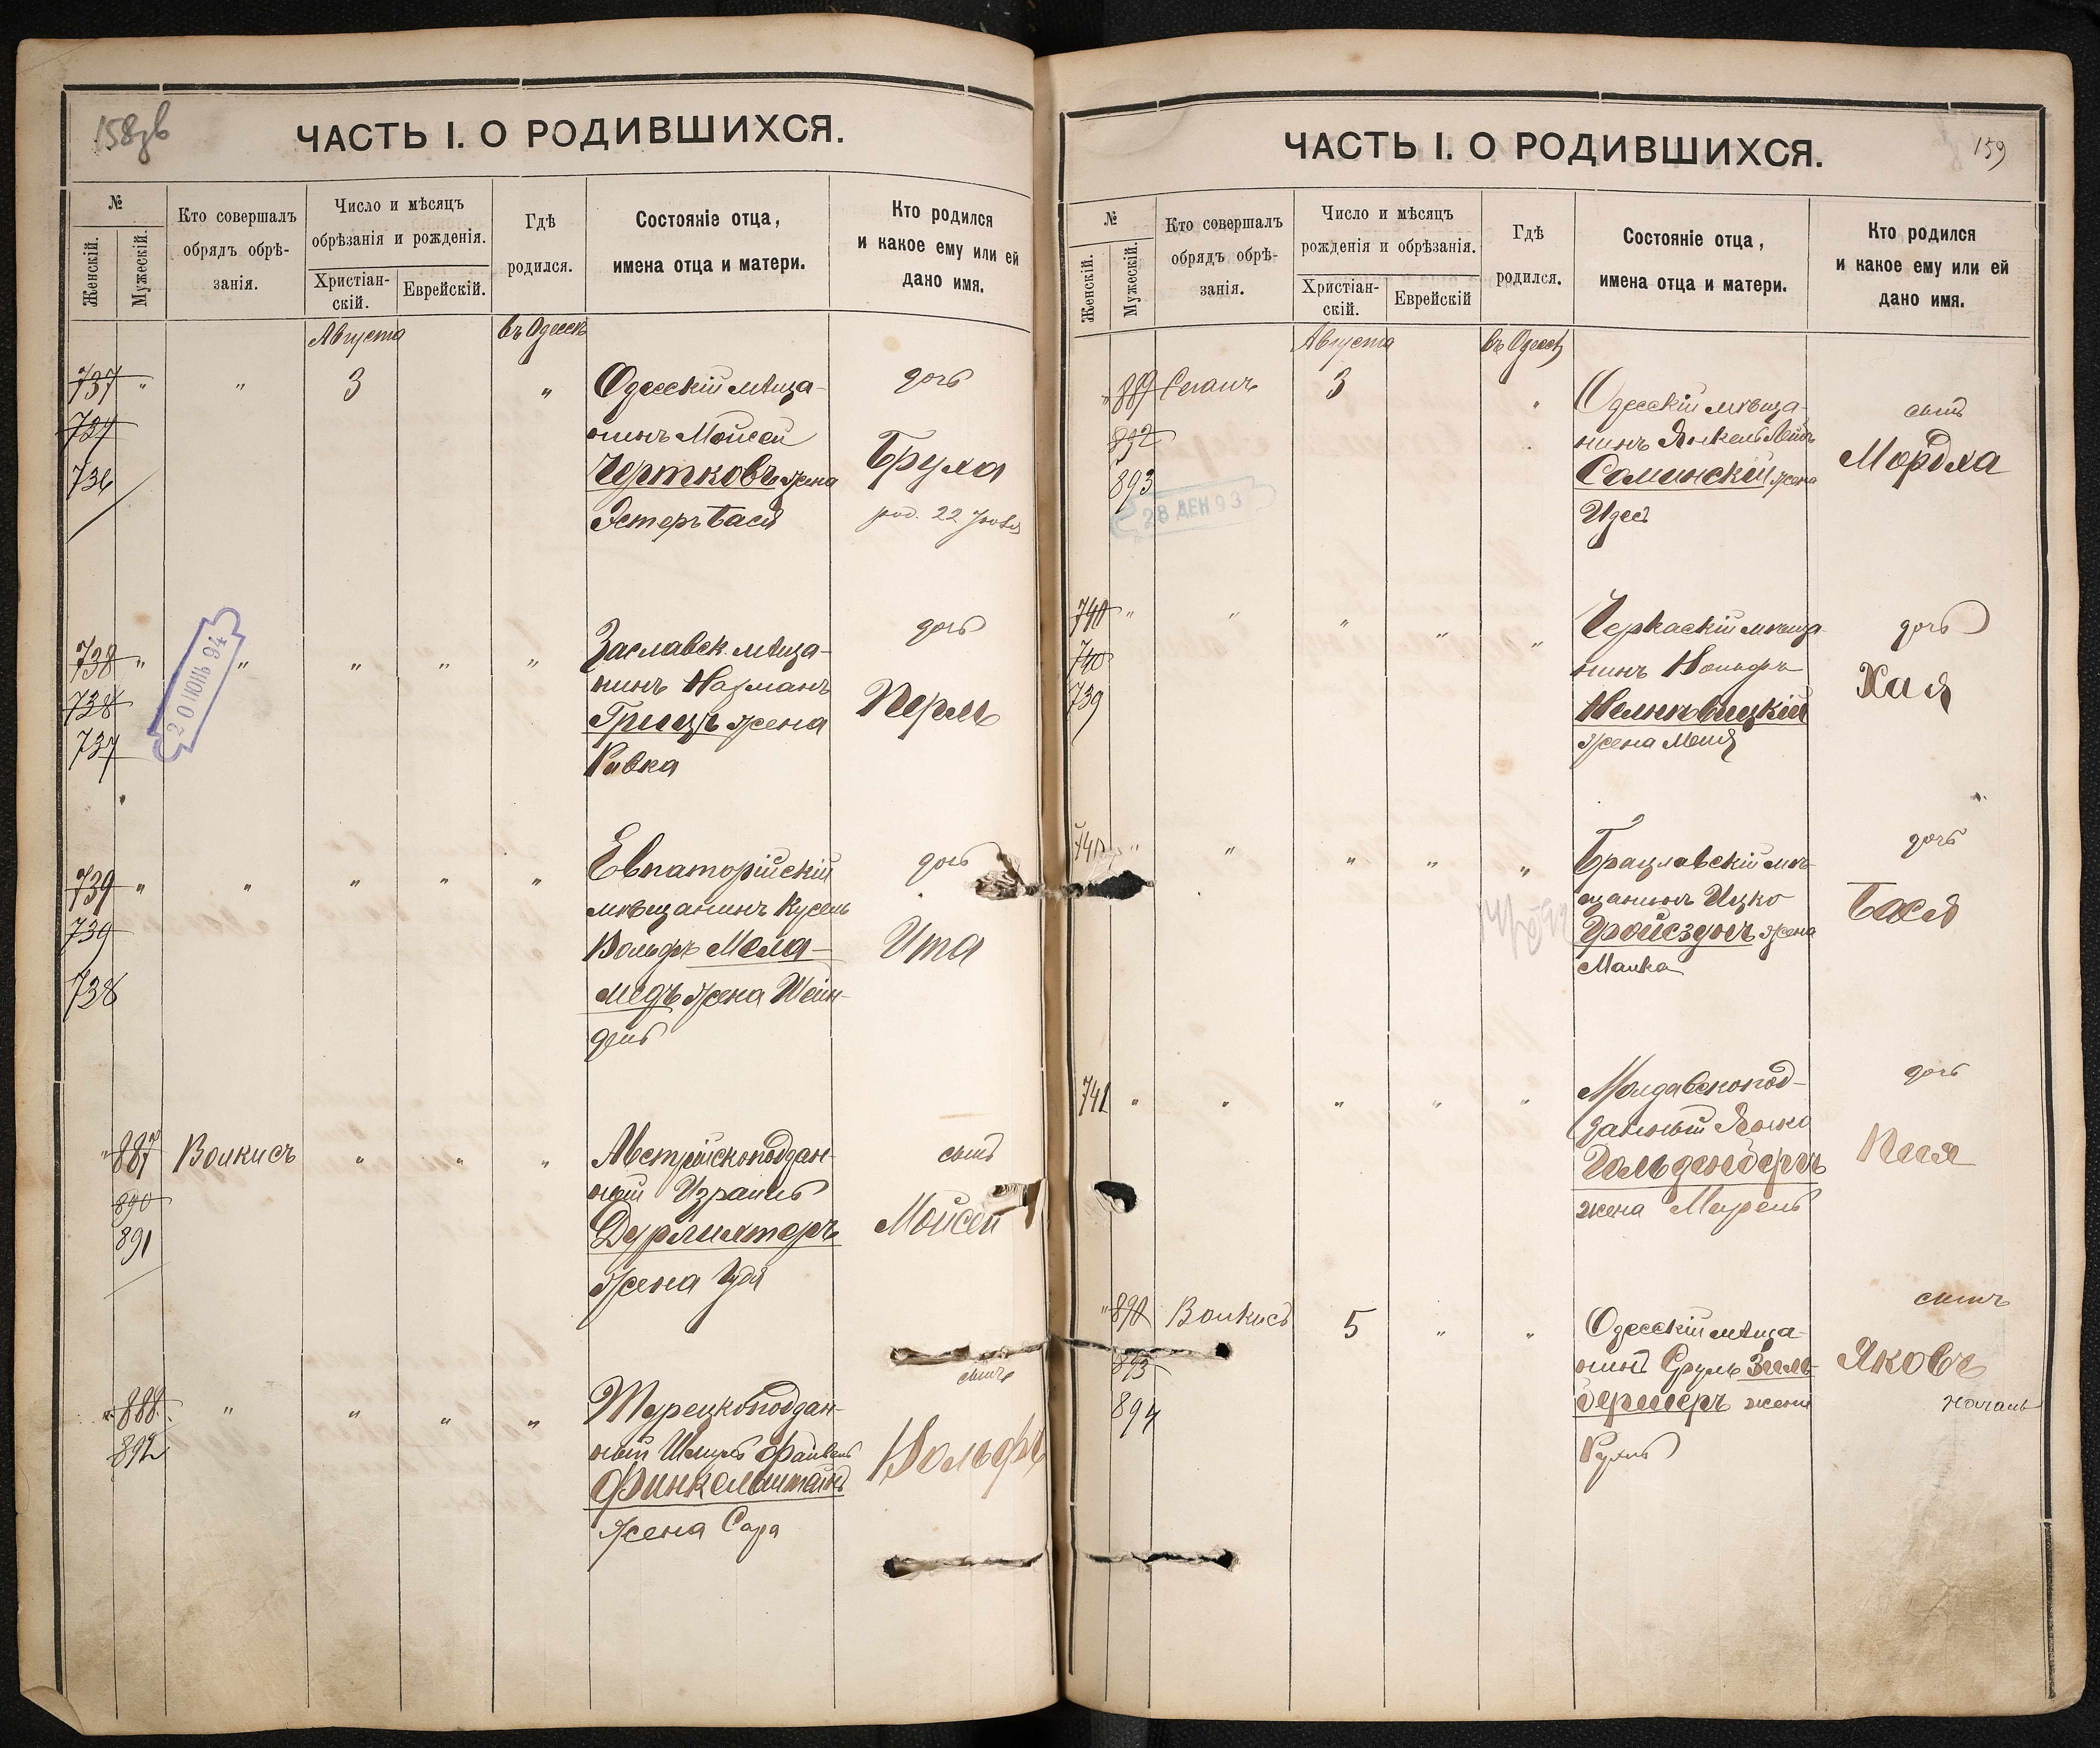 158зв
ЧАСТЬ I. О РОДИВШИХСЯ.
№
Женскій.
Мужескій.
Кто совершалъ
обрядъ обрѣ-
занія.
Число и мѣсяцъ
обрѣзанія и рожденія.
Христіан-
скій.
Еврейскій.
Гдѣ
родился.
Состояніе отца,
имена отца и матери.
Кто родился
и какое ему или ей
дано имя.
Августа
въ Одессѣ
737 " " 3 "
736
Одесскій мѣща-
нинъ Мойсей
Чертковъ жена
Эстеръ Бася
дочь
Бруха
род. 22
738 " " " " "
738
737
20 ІЮНЬ 94
Заславск. мѣща-
нинъ Нахманъ
Грицъ жена
Ривка
дочь
Перль
739 " " " " "
739
738
Евпаторійскій
мѣщанинъ Кусель
Вольфъ Мела-
медъ жена Шейн-
дель
дочь
Ита
" 887 Волкисъ " " "
890
891
Австрійскоподдан-
ный Израиль
Дурлихтеръ
жена Удя
сынъ
Мойсей
" 888 " " " "
892
Турецкоподдан-
ный Шмуль Файвель
Финкельштейнъ
жена Сара
сынъ
Вольфъ
159
ЧАСТЬ I. О РОДИВШИХСЯ.
№
Женскій.
Мужескій.
Кто совершалъ
обрядъ обрѣ-
занія.
Число и мѣсяцъ
рожденія и обрѣзанія.
Христіан-
скій.
Еврейскій
Гдѣ
родился.
Состояніе отца,
имена отца и матери.
Кто родился
и какое ему или ей
дано имя.
Августа
въ Одессѣ
" 889 Сеганъ 3 "
892
893
28 ДЕН 93
Одесскій мѣща-
нинъ Янкель Лейбъ
Солинскій жена
Идесъ
сынъ
Мордха
740 " " " " "
740
739
Черкаскій мѣща-
нинъ Вольфъ
жена Меня
дочь
Хая
" " " " "
Брацлавскій мѣ-
щанинъ Ицко
Тройсздохъ жена
Малка
дочь
Бася
741 " " " " "
Молдавскопод-
данный Янко
Гольденбергъ
жена Мирель
дочь
Песя
" 890 Волкисъ 5 " "
893
894
Одесскій мѣща-
нинъ Сруль Зиль-
берлеръ жена
Рухль
сынъ
Яковъ